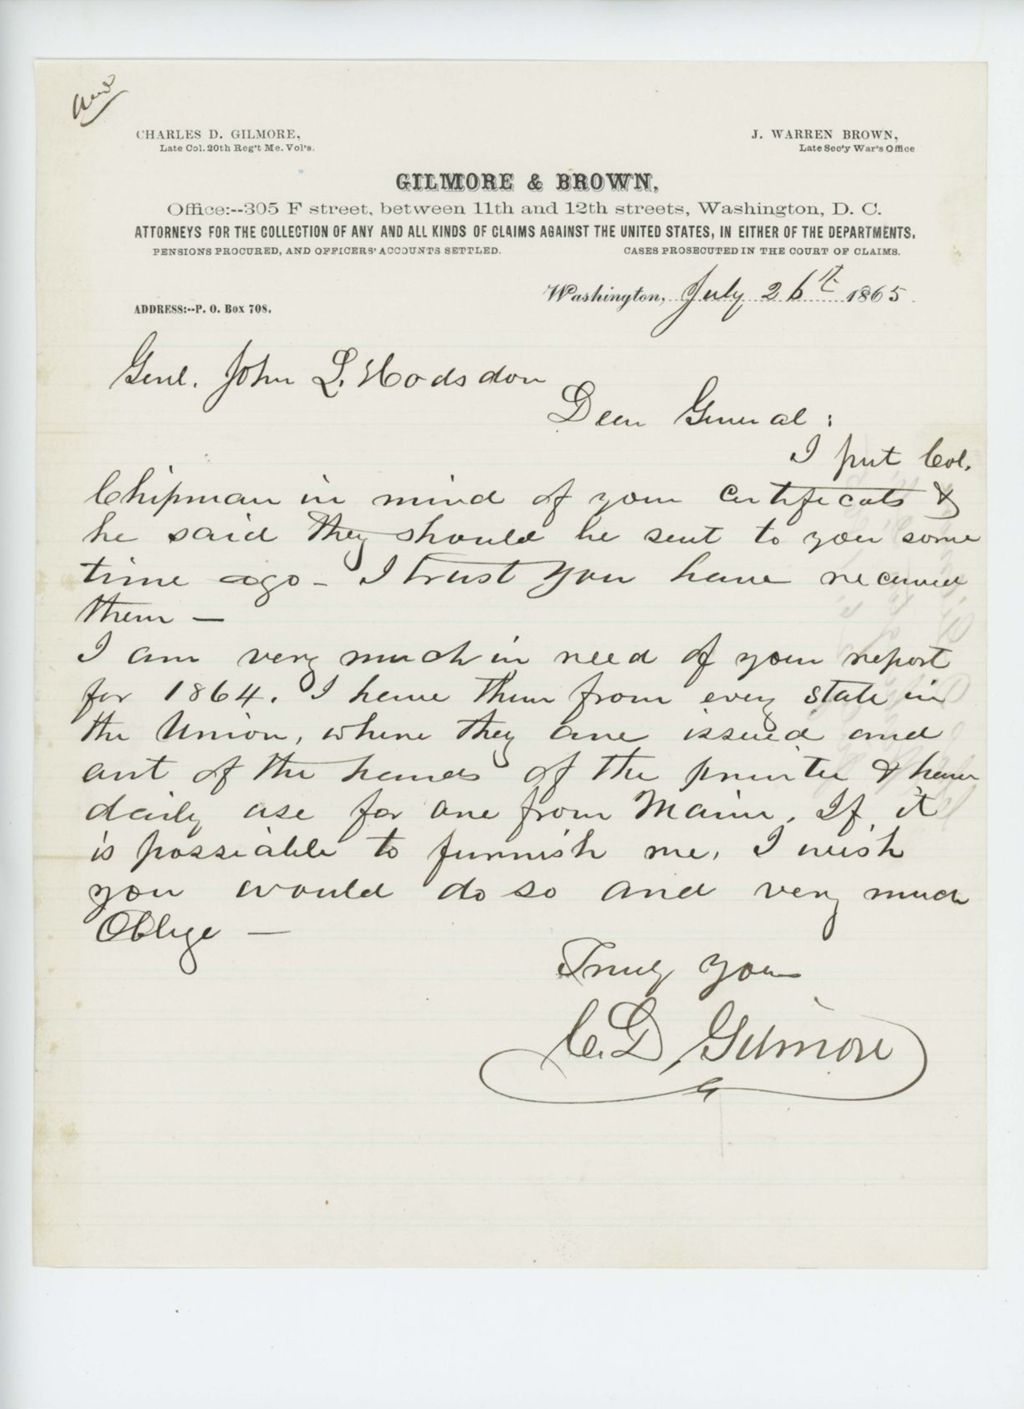 Ans
CHARLES D. GILMORE,
Late Col. 20th Reg't Me. Vol's.
J. WARREN BROWN,
Late Sec'y War's Office
GILMORE & BROWN,
Office:--305 F street, between 11th and 12th streets, Washington, D. C.
ATTORNEYS FOR THE COLLECTION OF ANY AND ALL KINDS OF CLAIMS AGAINST THE UNITED STATES, IN EITHER OF THE DEPARTMENTS,
PENSIONS PROCURED, AND OFFICERS' ACCOUNTS SETTLED. CASES PROSECUTED IN THE COURT OF CLAIMS.
ADDRESS:--P. O. Box 708.
Washington, July 26th 1865.
Genl. John L. Hodsdon
Dear General:
I put Col.
Chipman in mind of your Certificats &
he said they should be sent to you some
time ago - I trust you have received
them —
I am very much in need of your report
for 1864. I have them from every state in
the Union, where they are issued and
out of the hands of the printer & have
daily use for one from Maine. If it
is possiable to furnish me, I wish
you would do so and very much
Oblige —
Truly yours
C. D. Gilmore